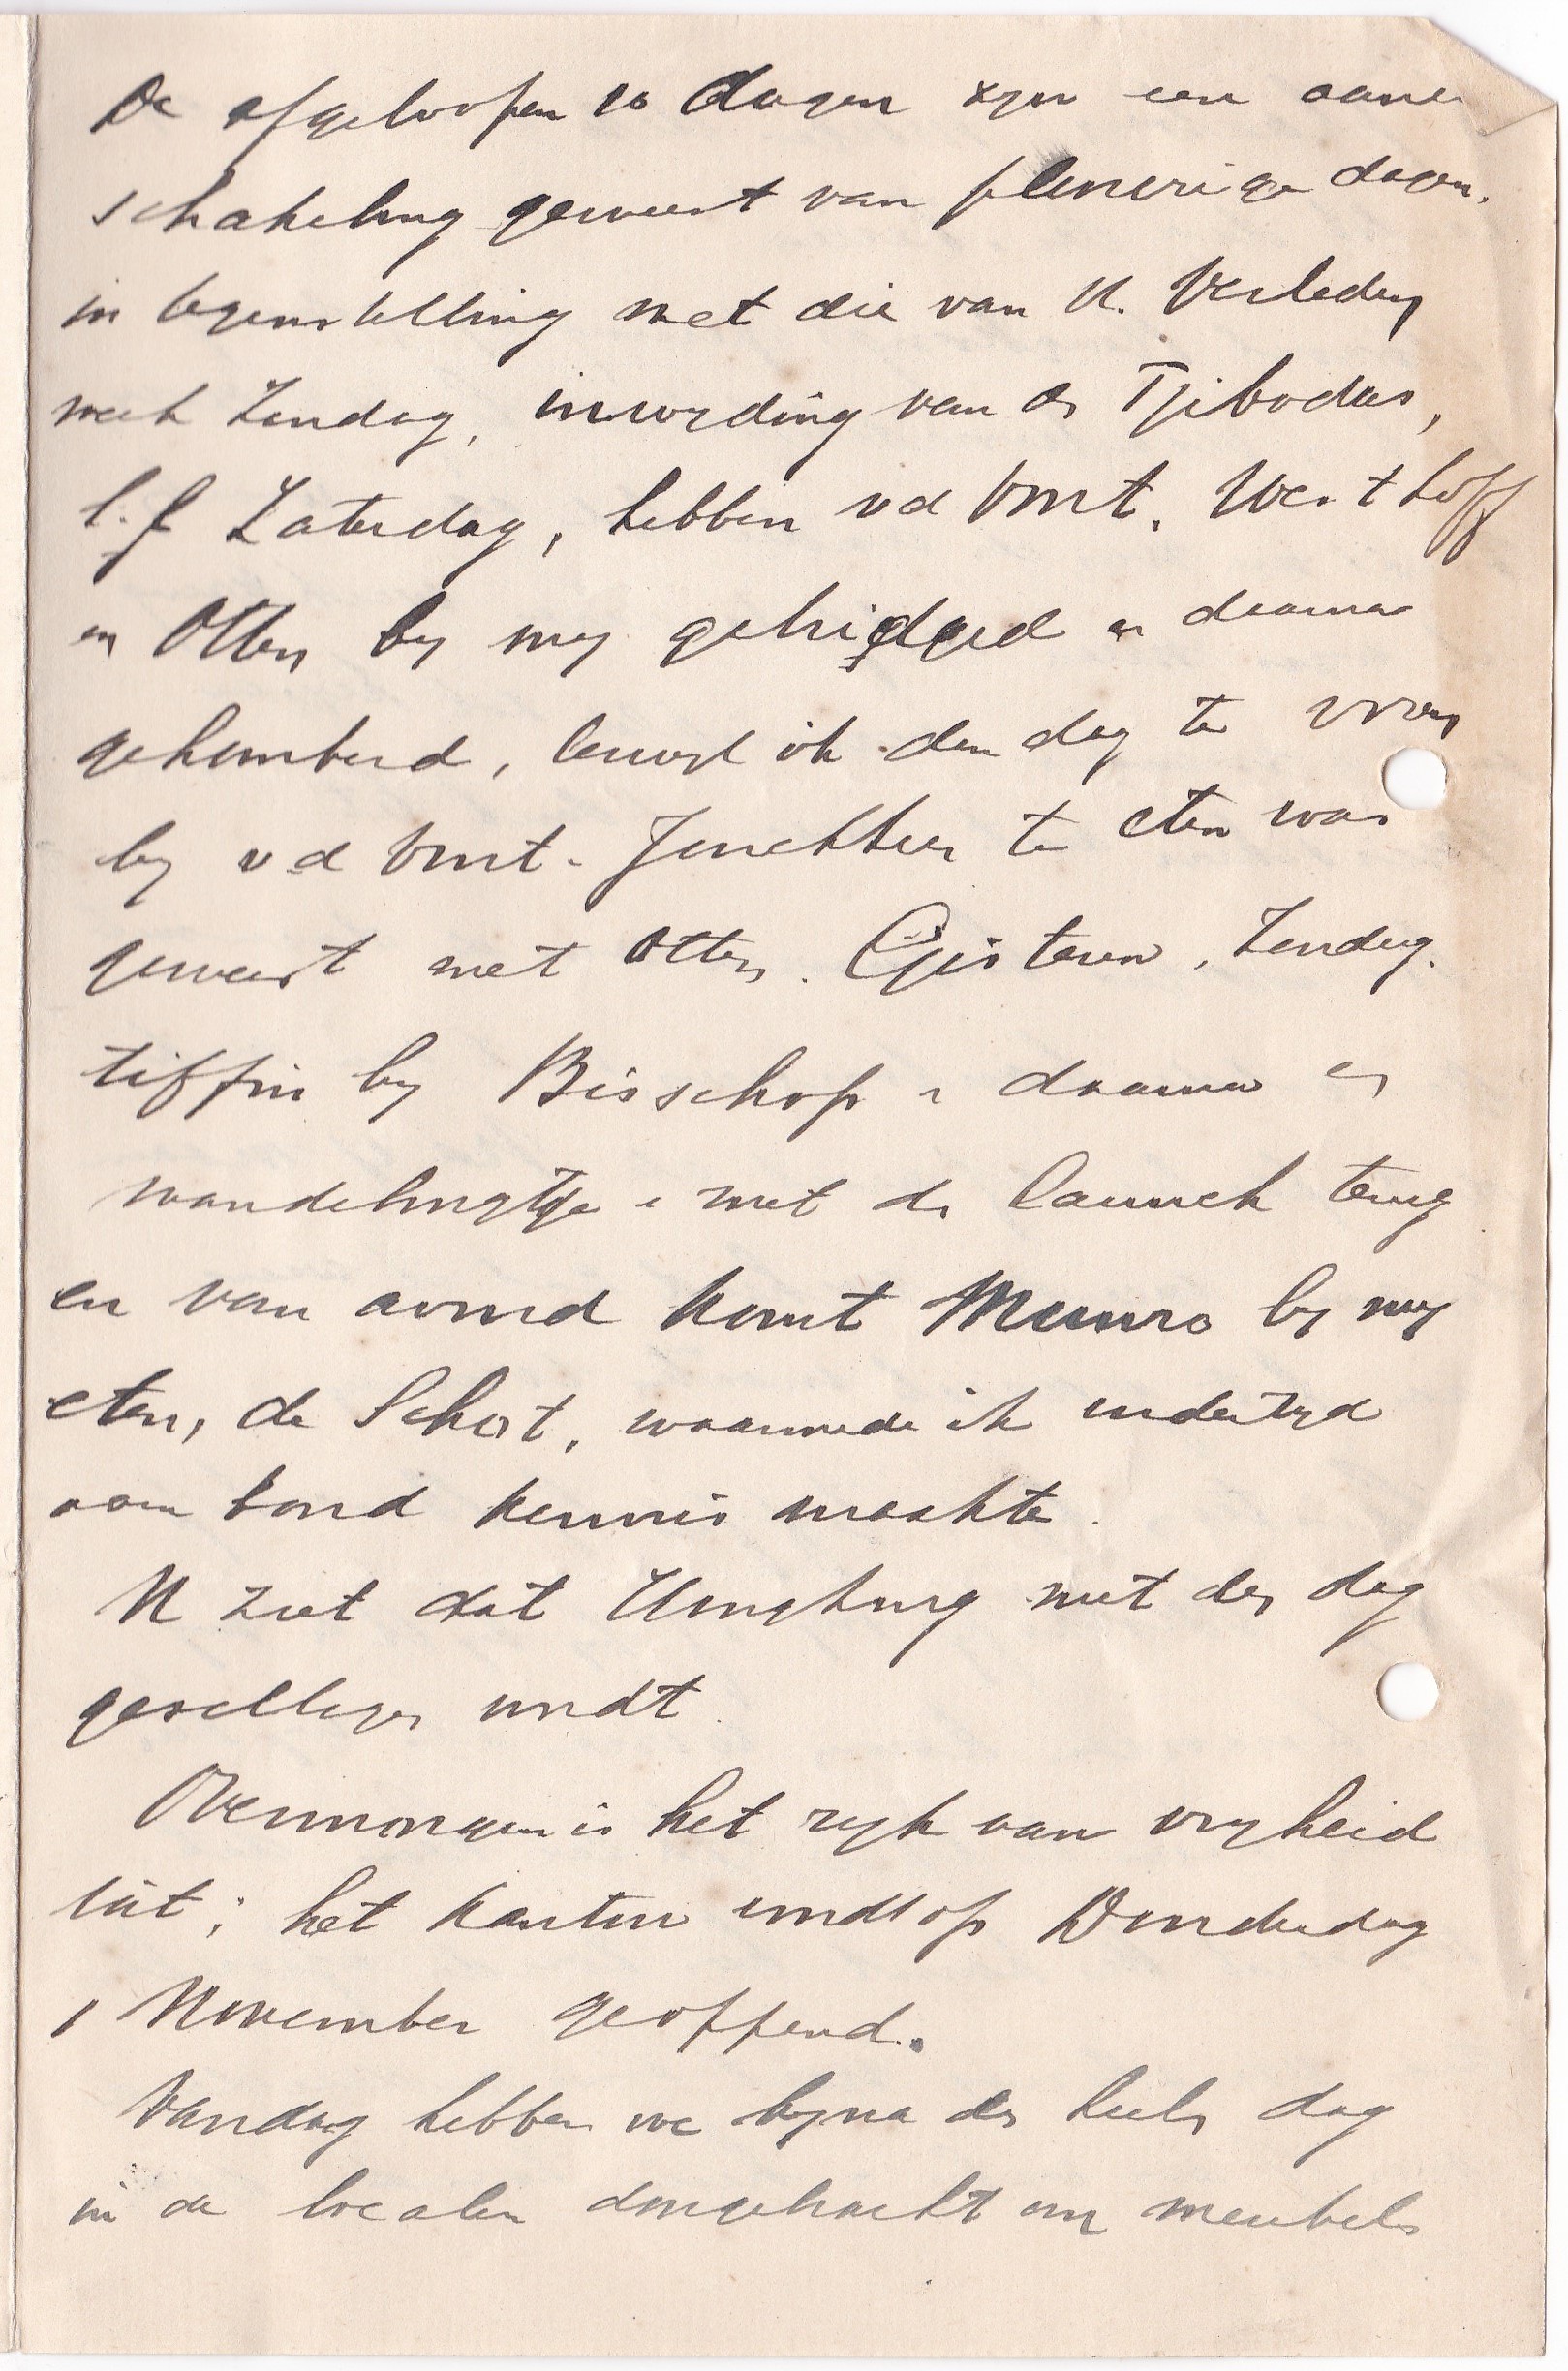 De afgeloopen 10 dagen zijn een aanee
schakeling geweest van plenerige dagen,
in tegenstelling met die van U. Verleden
week Zondag, inwijding van de Tjibodas,
l.l. Zaterdag, hebben v d Vmt. Westhoff
en Otten bij mij gebridged en daarna
gehomberd, terwijl ik den dag te voren
bij v d Vmt - Jonckheer te eten was
geweest met Otten. Gisteren, Zondag.
tiffin bij Bisschop en daarna een
wandelingetje en met de launch terug
en van avond komt Munro bij mij
eten, de Schot, waarmede ik indertijd
aan boord kennis maakte.
U ziet dat Hongkong met den dag
gezelliger wordt.
Overmorgen is het rijk van vrijheid
uit; het kantoor wordt op Donderdag
1 November geopend.
Vandaag hebben we bijna den heelen dag
in de localen doorgebracht om meubels